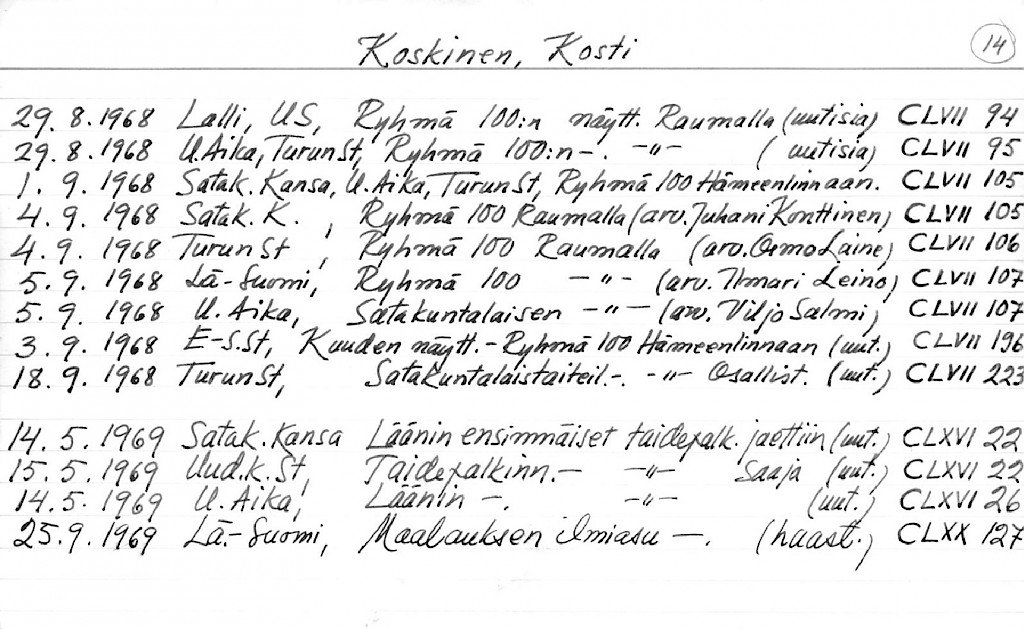 Koskinen, Kosti 14
29. 8. 1968 Lalli, US, Ryhmä 100:n näytt. Raumalla (uutisia) CLVII 94
29. 8. 1968 U.Aika, TurunSt, Ryhmä 100:n -. -"- (uutisia) CLVII 95
1. 9. 1968 Satak. Kansa, U.Aika, TurunSt, Ryhmä 100 Hämeenlinnaan. CLVII 105
4. 9. 1968 Satak. K. , Ryhmä 100 Raumalla (arv. Juhani Konttinen) CLVII 105
4. 9. 1968 TurunSt , Ryhmä 100 Raumalla (arv. Osmo Laine) CLVII 106
5. 9. 1968 Lä-Suomi, Ryhmä 100 -"- (arv. Ilmari Leino) CLVII 107
5. 9. 1968 U. Aika, Satakuntalaisen -"- (arv. Viljo Salmi) CLVII 107
3. 9. 1968 E-S.St, Kuuden näytt. - Ryhmä 100 Hämeenlinnaan (uut.) CLVII 196
18. 9. 1968 TurunSt, Satakuntalaistaiteil-. -"- Osallist. (uut.) CLVII 223
14. 5. 1969 Satak. Kansa Läänin ensimmäiset taidepalk. jaettiin (uut.) CLXVI 22
15. 5. 1969 Uud.k.St, Taidepalkinn. - -"- saaja (uut.) CLXVI 22
14. 5. 1969 U. Aika, Läänin -. -"- (uut.) CLXVI 26
25. 9. 1969 Lä.-Suomi, Maalauksen ilmiasu -. (haast.) CLXX 127